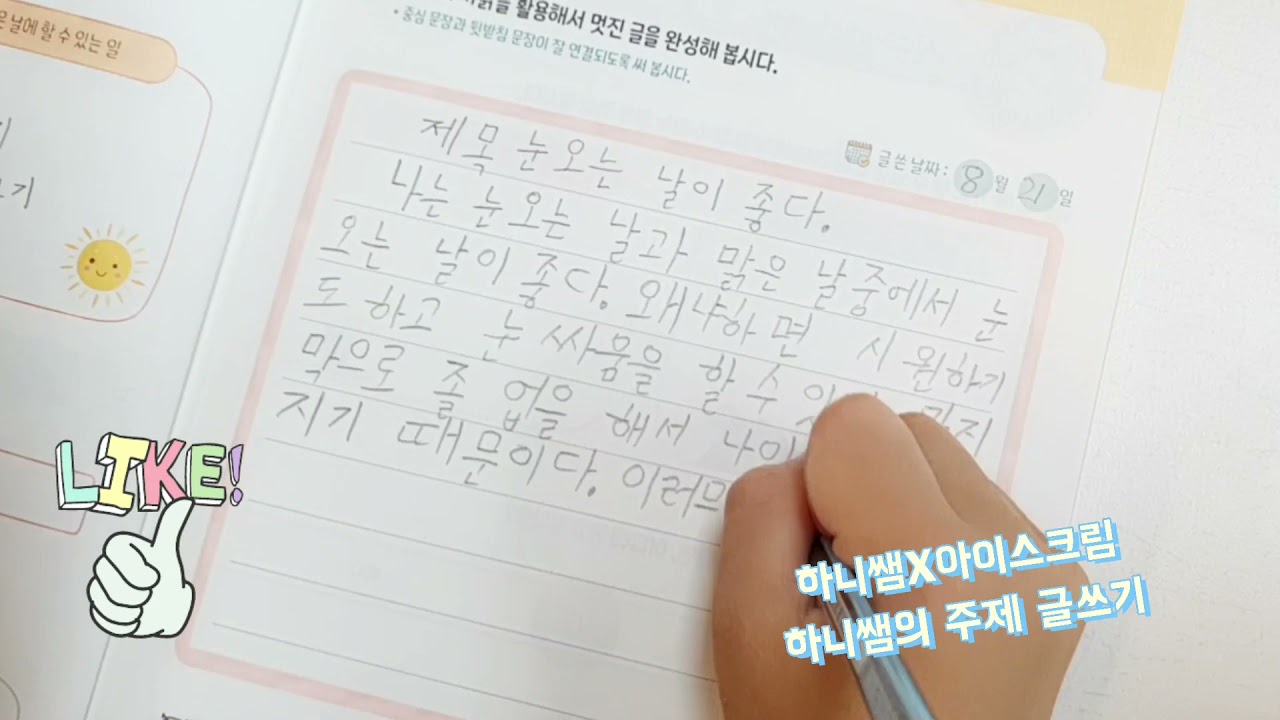 날에 할 수 있는 일
활용해서 멋진 글을 완성해 봅시다.
* 중심 문장과 뒷받침 문장이 잘 연결되도록 써 봅시다.
글 쓴 날짜 : 8월 21일
제목 눈오는 날이 좋다.
나는 눈오는 날과 맑은 날중에서 눈
오는 날이 좋다. 왜냐하면 시원하기
도 하고 눈싸움을 할 수
막으로 졸 업을 해서
지기 때문이다. 이러므
LIKE!
하니쌤X아이스크림
하니쌤의 주제 글쓰기